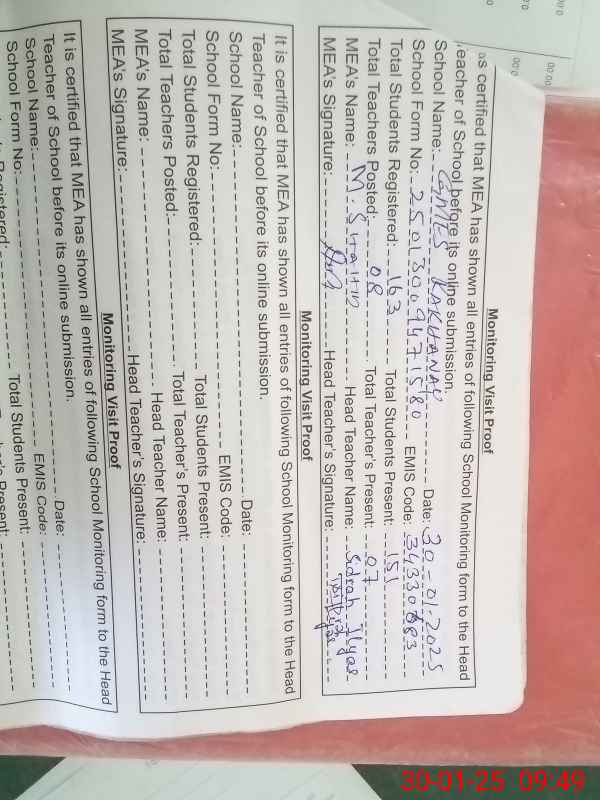 Monitoring Visit Proof
as certified that MEA has shown all entries of following School Monitoring form to the Head
Teacher of School before its online submission.
School Name: GMES KAKHANAN Date: 30-01-2025
School Form No: 2501300947 1580 EMIS Code: 34330083
Total Students Registered: 163 Total Students Present: 151
Total Teachers Posted: 08 Total Teacher's Present: 07
MEA's Name: M. Head Teacher Name: Sidrah Ilyas
MEA's Signature: Head Teacher's Signature:
Monitoring Visit Proof
It is certified that MEA has shown all entries of following School Monitoring form to the Head
Teacher of School before its online submission.
School Name: Date:
School Form No: EMIS Code:
Total Students Registered: Total Students Present:
Total Teachers Posted: Total Teacher's Present:
MEA's Name: Head Teacher Name:
MEA's Signature: Head Teacher's Signature:
Monitoring Visit Proof
It is certified that MEA has shown all entries of following School Monitoring form to the Head
Teacher of School before its online submission.
School Name: Date:
School Form No: EMIS Code:
Registered: Total Students Present:
Present:
30-01-25 09:49